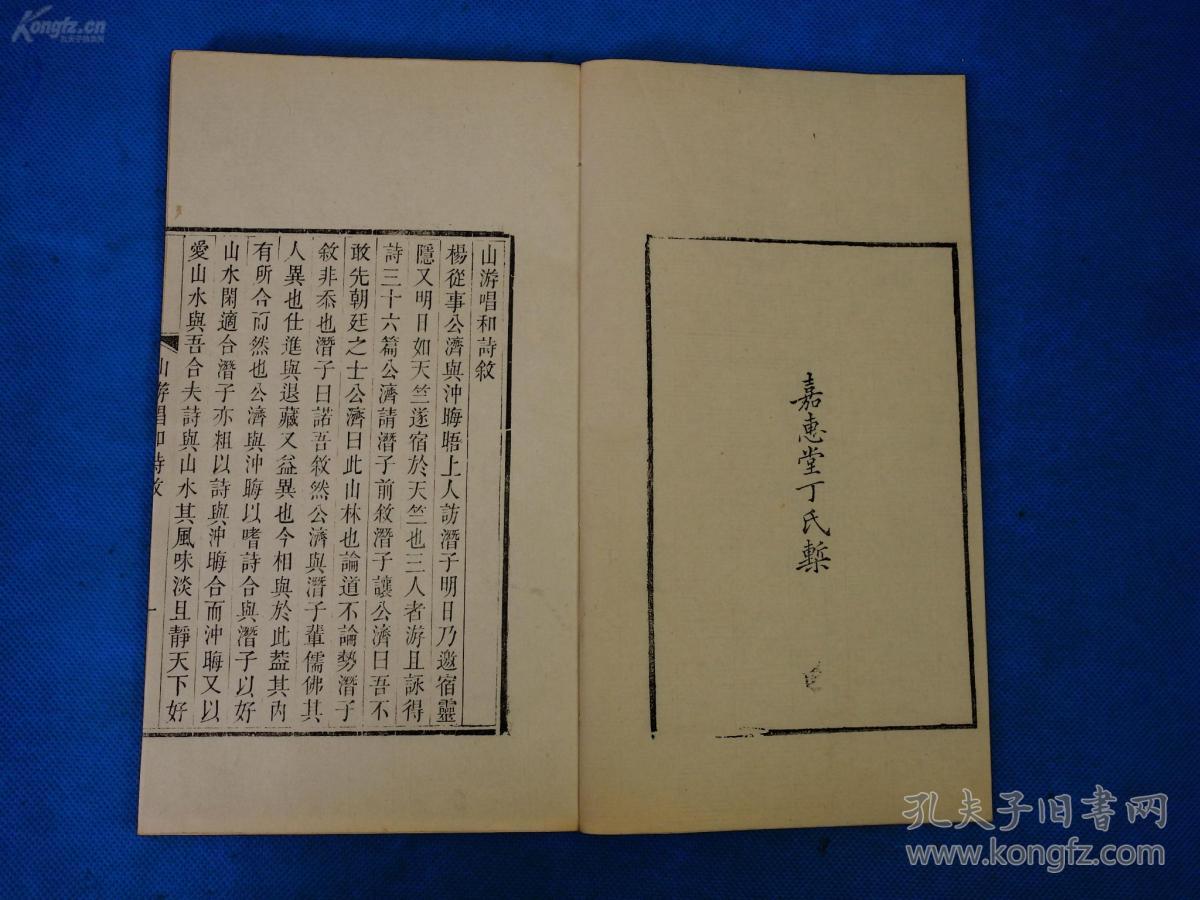 Kongfz.cn
嘉惠堂丁氏槧
山游唱和詩敘
楊從事公濟與沖晦晤上人訪潛子明日乃邀宿靈
隱又明日如天竺遂宿於天竺也三人者游且詠得
詩三十六篇公濟請潛子前敘潛子讓公濟曰吾不
敢先朝廷之士公濟曰此山林也論道不論勢潛子
敘非忝也潛子曰諾吾敘然公濟與潛子輩儒佛其
人異也仕進與退藏又益異也今相與於此蓋其內
有所合而然也公濟與沖晦以嗜詩合與潛子以好
山水閑適合潛子亦粗以詩與沖晦合而沖晦又以
愛山水與吾合夫詩與山水其風味淡且靜天下好
山游唱和詩敘
一
孔夫子旧书网
www.kongfz.com